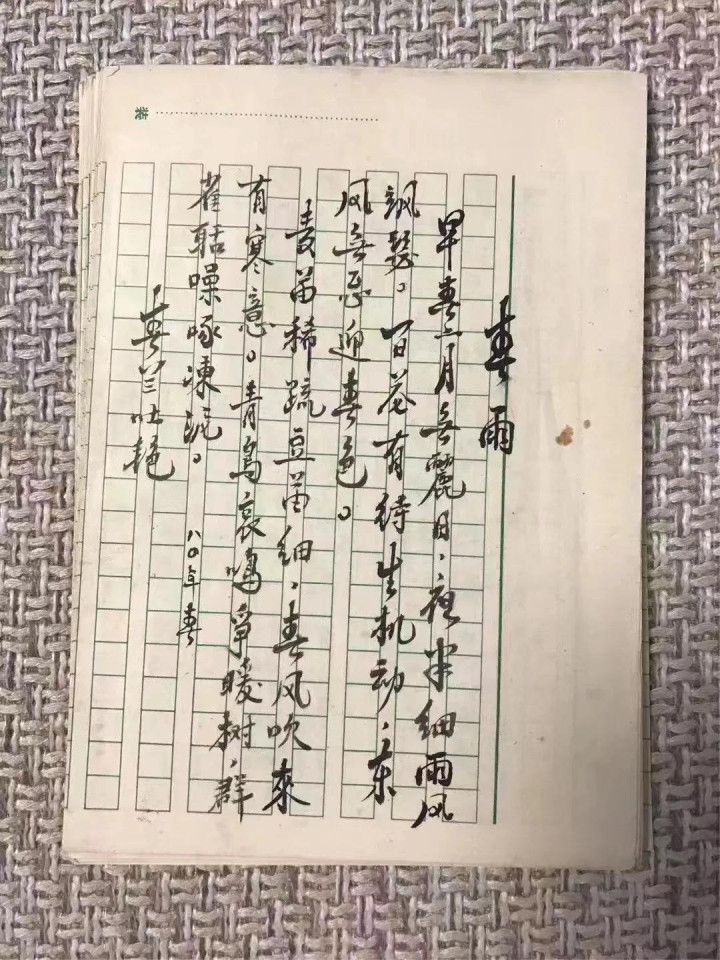 春雨
早春二月无麗日、夜半细雨风
飒瑟。百花有待生机动、东
风无忌迎春色。
麦苗稀疏豆苗细、春风吹来
有寒意。青鸟哀鸣争暖树、群
雀聒噪啄冻泥。
八〇年春
春兰吐艳